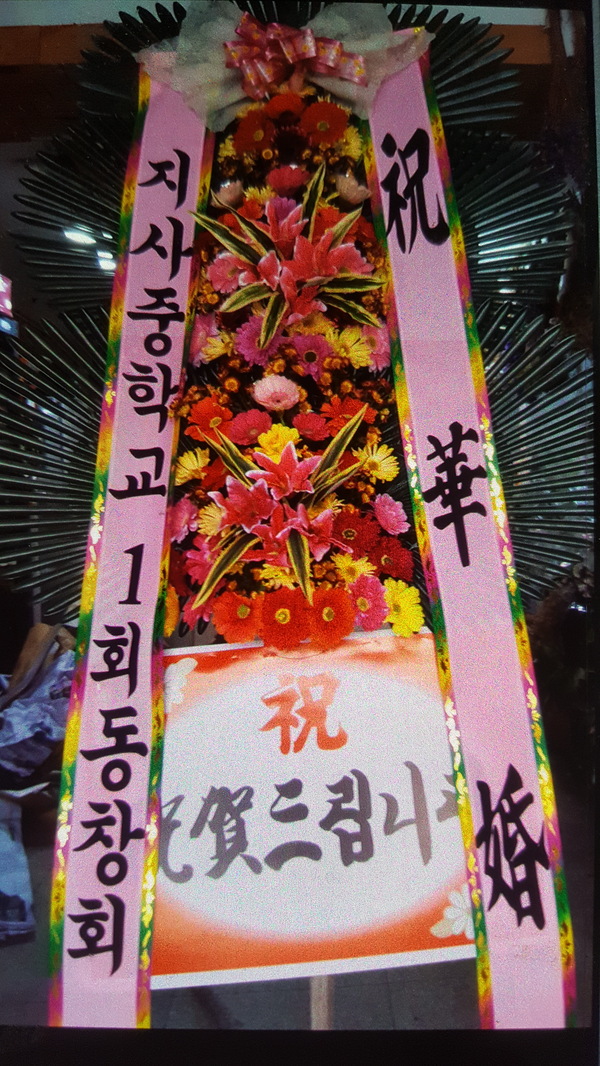 지사중학교 1회동창회
祝
祝賀드립니다
祝 華 婚